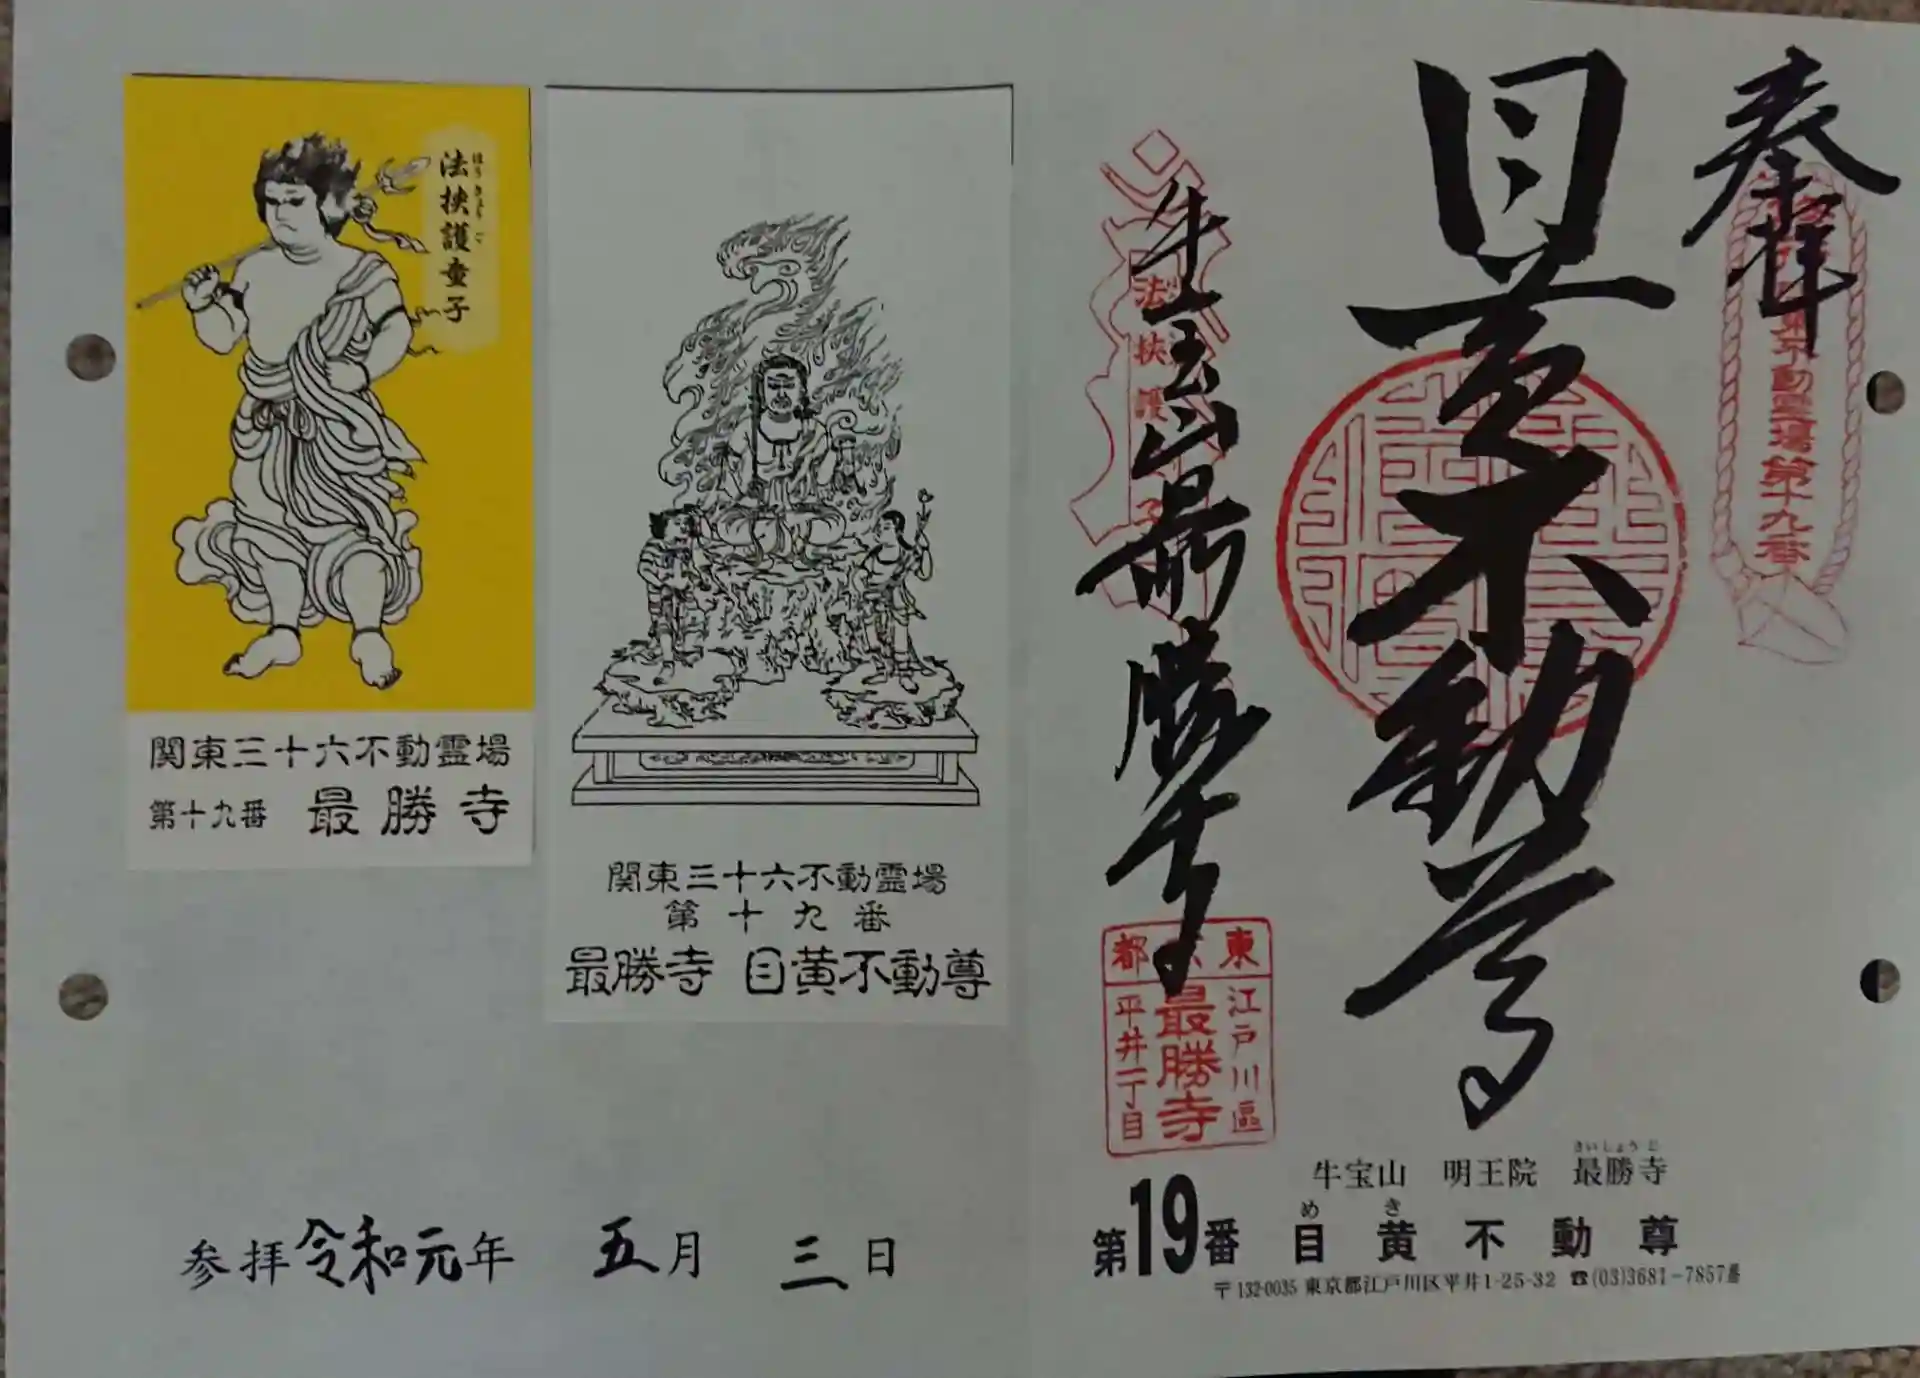 奉拝
関東不動霊場第十九番
目黄不動尊
牛宝山最勝寺
法挟護童子
東京都
江戸川區
最勝寺
平井一丁目
牛宝山 明王院 最勝寺
さいしょうじ
めき
第19番 目黄不動尊
〒132-0035 東京都江戸川区平井1-25-32 ☎(03)3681-7857番
法挟護童子
ほうきょうご
関東三十六不動霊場
第十九番 最勝寺
関東三十六不動霊場
第十九番
最勝寺 目黄不動尊
参拝令和元年 五月 三日